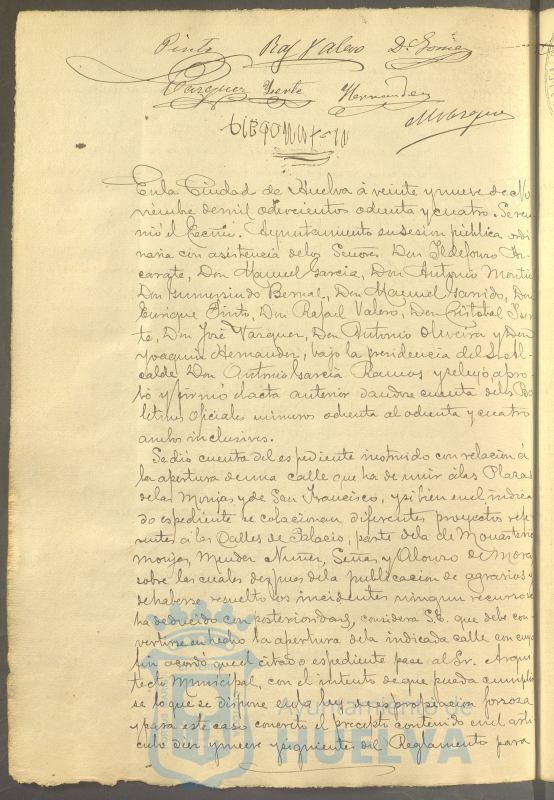 Pinto Raf Valero D. Gomez
Vazquez Yerte Hernandez
M Vazquez
En la Ciudad de Huelva à veinte y nueve de No
viembre de mil ochocientos ochenta y cuatro. Se reu
nió el Excmo. Ayuntamiento en sesion pública ordi
naria con asistencia de los Señores Don Ildefonso Ar
carate, Don Manuel Garcia, Don Antonio Montiel
Don Gumersindo Bernal, Don Manuel Garrido, Don
Enrique Pinto, Don Rafael Valero, Don Cristobal Yer
te, Don José Vazquez, Don Antonio Oliveira y Don
Joaquin Hernandez, bajo la presidencia del Sr. Al
calde Don Antonio Garcia Ramos y se leyó, apro
bó y firmó el acta anterior dandose cuenta de los Bo
letines oficiales números ochenta al ochenta y cuatro
ambos inclusives.
Se dió cuenta del espediente instruido con relacion á
la apertura de una calle que ha de unir á las Plazas
de las Monjas y de San Francisco, y si bien en el indica
do espediente se colacionan diferentes proyectos refe
rentes á las Calles de Palacio, parte de la de Monasterio
monjas, Mendez Nuñez, Señas y Alonso de Mora
sobre las cuales despues de la publicacion de agravios y
de haberse resuelto los incidentes ningun recurso se
ha deducido con posterioridad, considera S.E. que debe con
vertirse en hecho la apertura de la indicada calle con cuyo
fin acordó que el citado espediente pase al Sr. Arqui
tecto Municipal, con el intento de que pueda cumplir
se lo que se dispone en la ley de espropiacion forzosa
y para este caso concreto el precepto contenido en el arti
culo diez y nueve y siguientes del Reglamento para
Ayuntamiento de
HUELVA